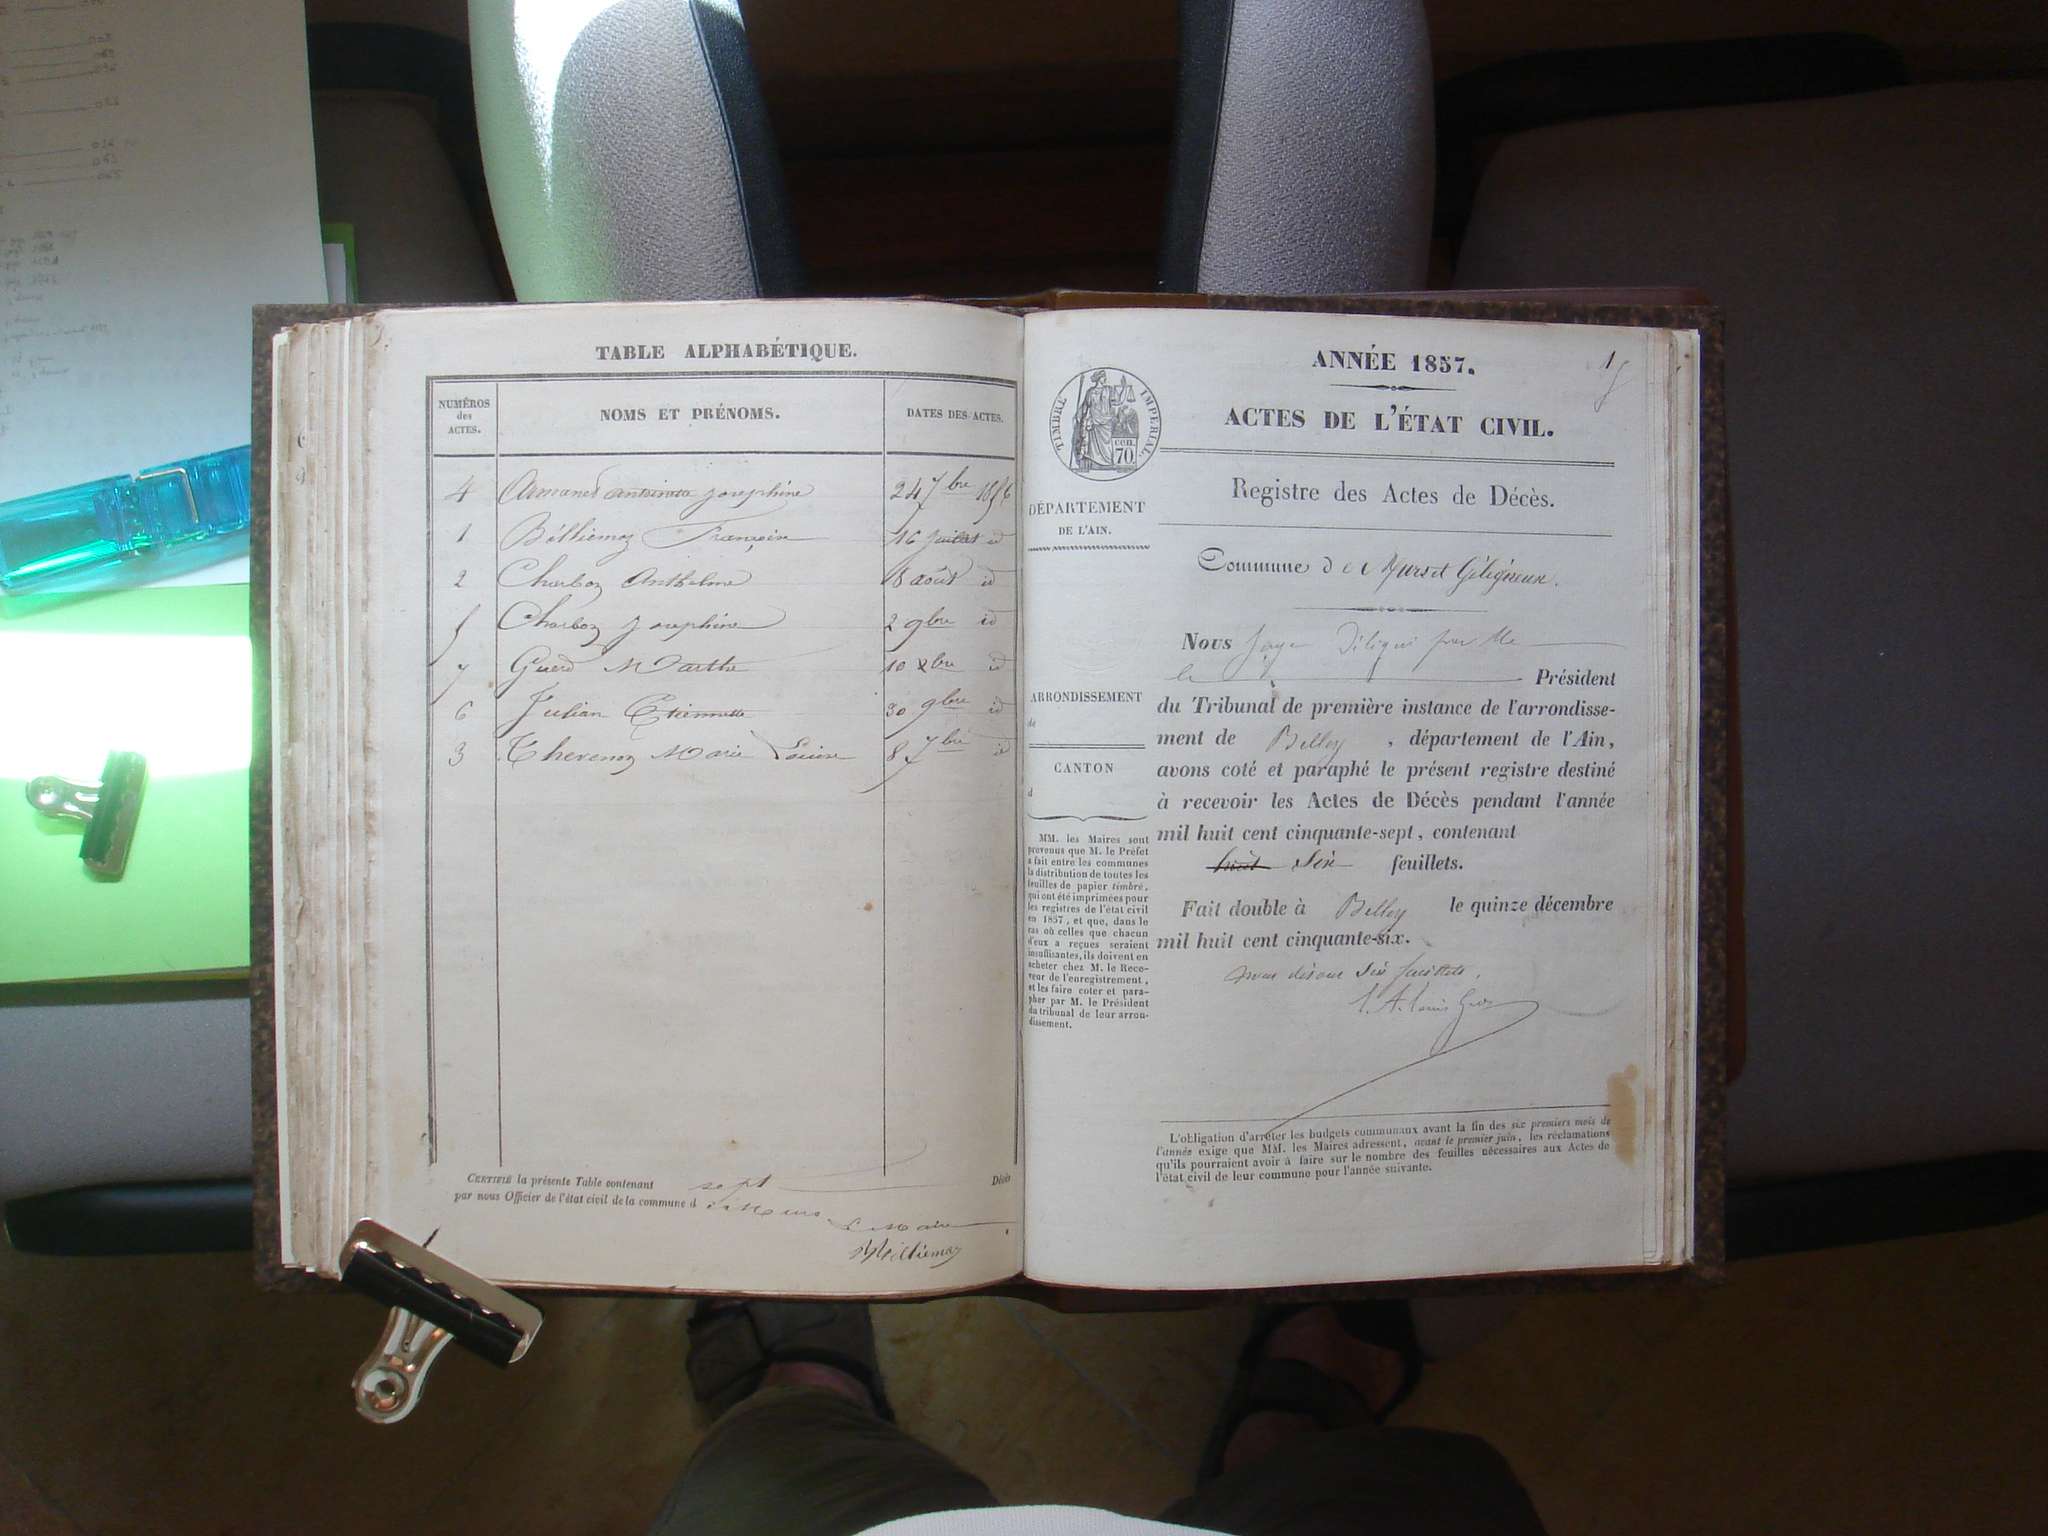 TABLE ALPHABÉTIQUE.
NUMÉROS
des
ACTES.
NOMS ET PRÉNOMS.
DATES DES ACTES.
4 Armanet antoinette Josephine 24 7bre 1856
1 Bélliemoz Françoise 16 juillet id
2 Charboz Anthelme 18 août id
5 Charboz Josephine 2 9bre id
7 Guerd Marthe 10 xbre id
6 Julian Etiennette 30 9bre id
3 Thevenoz Marie 8 7bre id
CERTIFIÉ la présente Table contenant sept Décès
par nous Officier de l'état civil de la commune d e Murs
le Maire
ANNÉE 1857.
1
TIMBRE IMPÉRIAL
cen.
70
ACTES DE L'ÉTAT CIVIL.
Registre des Actes de Décès.
DÉPARTEMENT
DE L'AIN.
Commune de Murs et Géligneux.
ARRONDISSEMENT
de
CANTON
d
MM. les Maires sont
prévenus que M. le Préfet
a fait entre les communes
la distribution de toutes les
feuilles de papier timbré,
qui ont été imprimées pour
les registres de l'état civil
en 1857, et que, dans le
cas où celles que chacun
d'eux a reçues seraient
insuffisantes, ils doivent en
acheter chez M. le Rece-
veur de l'enregistrement,
et les faire coter et para-
pher par M. le Président
du tribunal de leur arron-
dissement.
Nous Juge Délégué par Mr
le Président
du Tribunal de première instance de l'arrondisse-
ment de Belley, département de l'Ain,
avons coté et paraphé le présent registre destiné
à recevoir les Actes de Décès pendant l'année
mil huit cent cinquante-sept, contenant
huit six feuillets.
Fait double à Belley le quinze décembre
mil huit cent cinquante-six.
nous disons six feuillets.
L'obligation d'arrêter les budgets communaux avant la fin des six premiers mois de
l'année exige que MM. les Maires adressent, avant le premier juin, les réclamations
qu'ils pourraient avoir à faire sur le nombre des feuilles nécessaires aux Actes de
l'état civil de leur commune pour l'année suivante.